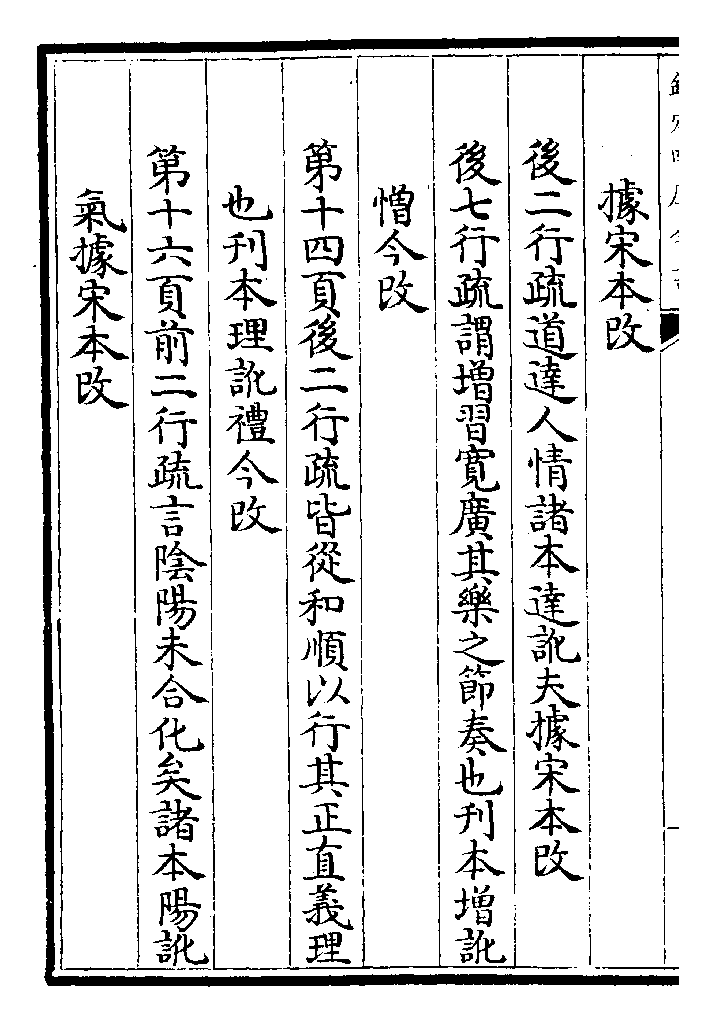 據宋本改
後二行疏道達人情諸本達訛夫據宋本改
後七行疏謂增習寛廣其樂之節奏也刊本增訛
憎今改
第十四頁後二行疏皆從和順以行其正直義理
也刊本理訛禮今改
第十六頁前二行疏言陰陽未合化矣諸本陽訛
氣據宋本改